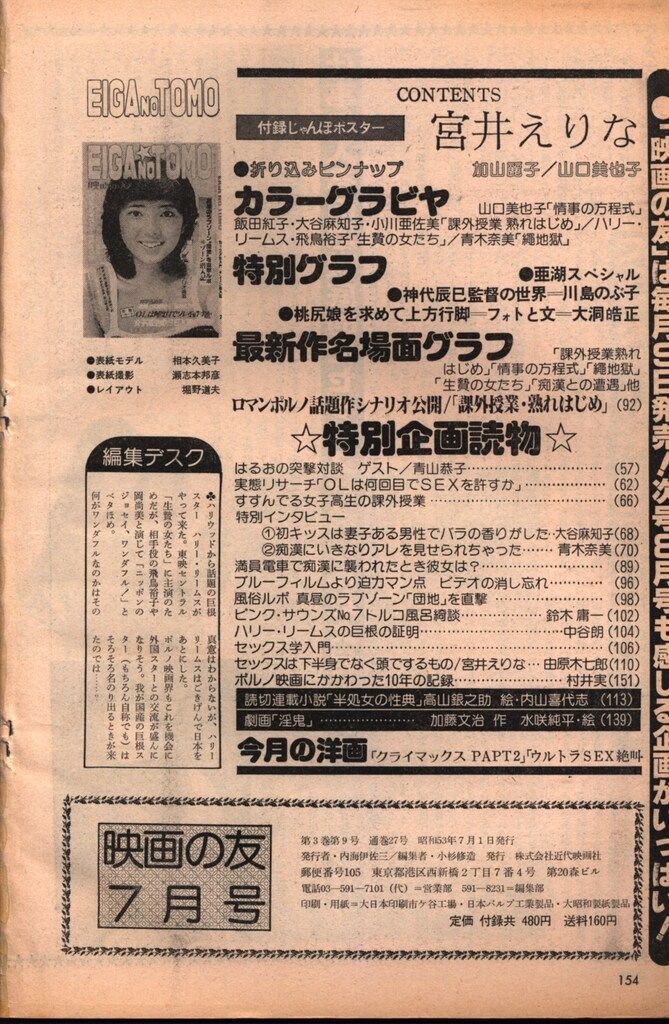 EIGA NO TOMO
EIGA NO TOMO
●表紙モデル 相本久美子
●表紙撮影 瀬志本邦彦
●レイアウト 堀野道夫
CONTENTS
付録じゃんぼポスター 宮井えりな
●折り込みピンナップ 加山麗子／山口美也子
カラーグラビヤ 山口美也子「情事の方程式」
飯田紅子・大谷麻知子・小川亜佐美「課外授業 熟れはじめ」／ハリー・
リームス・飛鳥裕子「生贄の女たち」／青木奈美「縄地獄」
特別グラフ ●亜湖スペシャル
●神代辰巳監督の世界＝川島のぶ子
●桃尻娘を求めて上方行脚＝フォトと文＝大洞皓正
最新作名場面グラフ 「課外授業熟れ
はじめ」「情事の方程式」「縄地獄」
「生贄の女たち」「痴漢との遭遇」他
ロマンポルノ話題作シナリオ公開/「課外授業・熟れはじめ」(92)
☆特別企画読物☆
はるおの突撃対談 ゲスト／青山恭子…(57)
実態リサーチ「OLは何回目でSEXを許すか」…(62)
すすんでる女子高生の課外授業…(66)
特別インタビュー
①初キッスは妻子ある男性でバラの香りがした…大谷麻知子(68)
②痴漢にいきなりアレを見せられちゃった……青木奈美(70)
満員電車で痴漢に襲われたとき彼女は？…(89)
ブルーフィルムより迫力マン点 ビデオの消し忘れ…(96)
風俗ルポ 真昼のラブゾーン「団地」を直撃…(98)
ピンク・サウンズNo.7トルコ風呂綺談…鈴木庸一(102)
ハリー・リームスの巨根の証明…中谷朗(104)
セックス学入門…(106)
セックスは下半身でなく頭でするもの/宮井えりな…由原木七郎(110)
ポルノ映画にかかわった10年の記録…村井実(151)
読切連載小説「半処女の性典」高山銀之助 絵・内山喜代志 (113)
劇画「淫鬼」…加藤文治 作 水咲純平・絵(139)
今月の洋画「クライマックス PAPT2」「ウルトラSEX絶叫」
編集デスク
♣ハリウッドから話題の巨根
スター ハリー・リームスが
やって来た。東映セントラル
「生贄の女たち」に主演のた
めだが、相手役の飛鳥裕子や
岡尚美と演じて「ニッポンの
ジョセイ、ワンダフル！」と
ベタほめ。
何がワンダフルなのかはその
真意はわからないが、ハリー
リームスはごきげんで日本を
あとにした。
ポルノ映画界もこれを機会に
外国スターとの交流が盛んに
なりそう。我が国産の巨根ス
ター（もちろん自称でも）は
そろそろ名のり出るときが来
たのでは……
映画の友
7月号
第3巻第9号 通巻27号 昭和53年7月1日発行
発行者・内海伊佐三／編集者・小杉修造 発行 株式会社近代映画社
郵便番号105 東京都港区西新橋2丁目7番4号 第20森ビル
電話03-591-7101（代）＝営業部 591-8231＝編集部
印刷・用紙＝大日本印刷市ケ谷工場・日本パルプ工業製品・大昭和製紙製品
定価 付録共 480円 送料160円
154